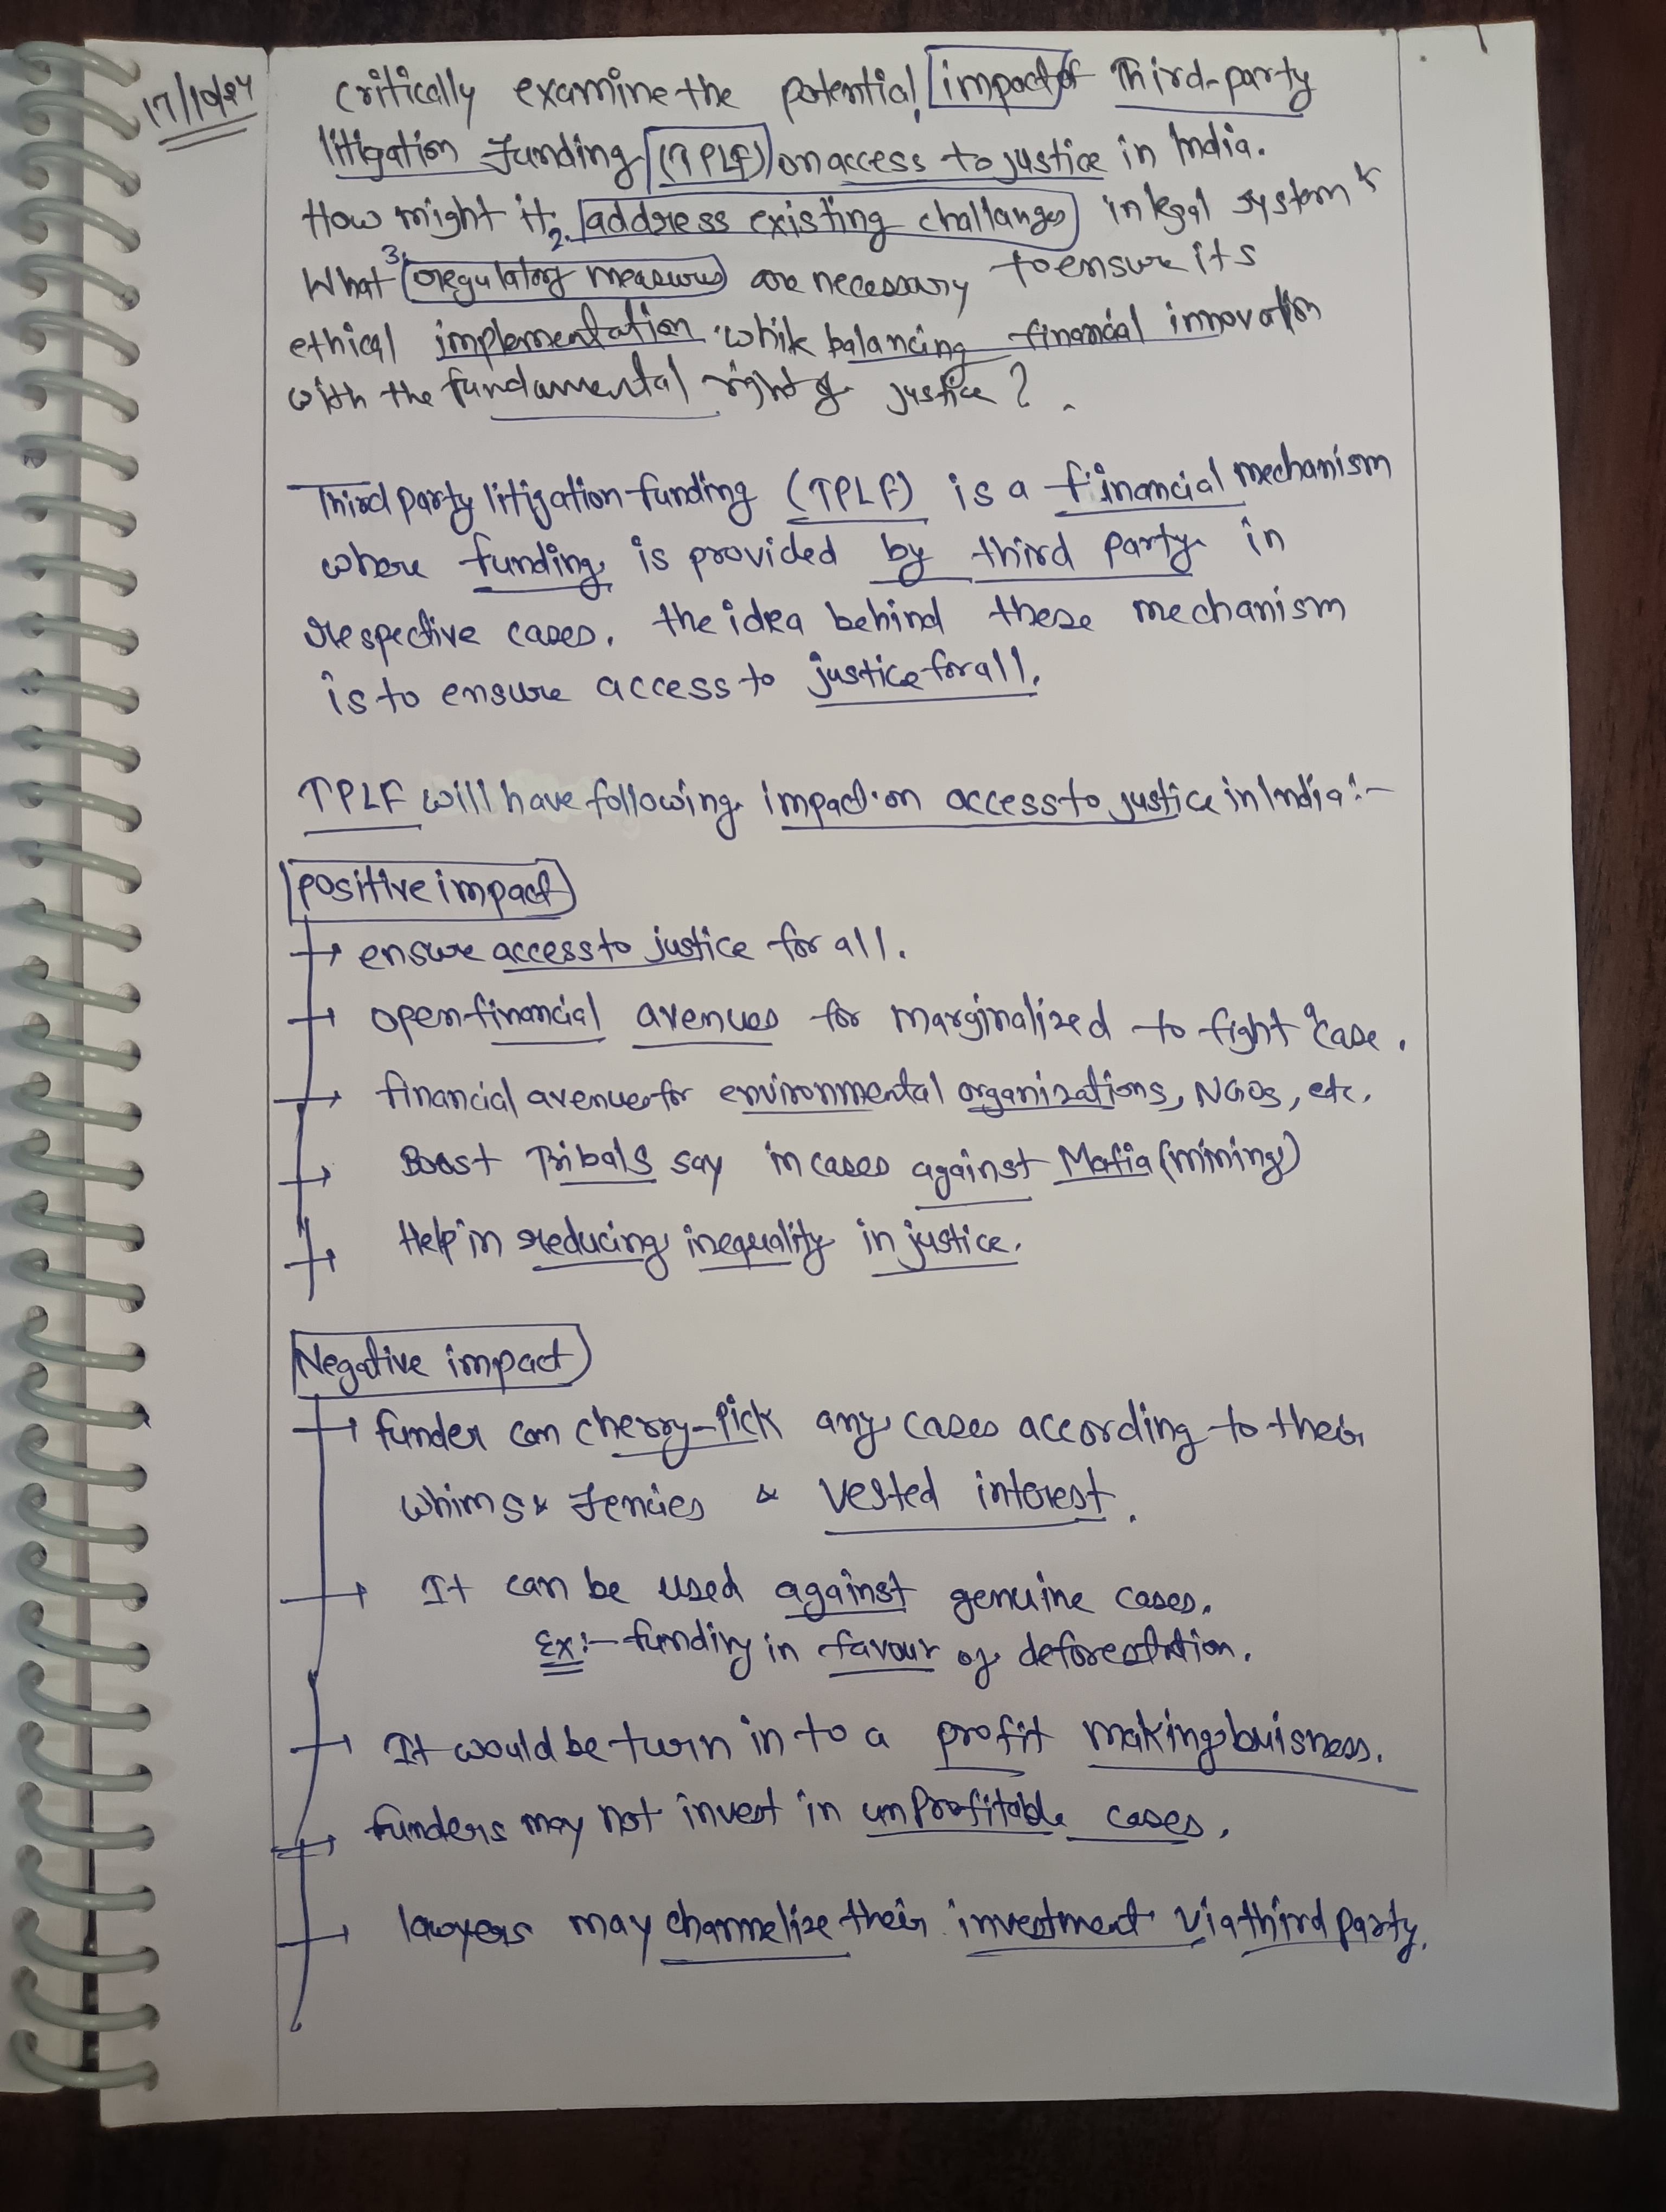 17/10/24
critically examine the potential impact of Third-party
litigation Funding (TPLF) on access to justice in India.
How might it 2. address existing challanges in legal system &
What 3. regulatory measures are necessary to ensure its
ethical implementation while balancing financial innovation
with the fundamental right of justice ?
Third party litigation funding (TPLF) is a financial mechanism
where funding is provided by third party in
respective cases. the idea behind these mechanism
is to ensure access to justice for all.
TPLF will have following impact on access to justice in India :-
Positive impact
→ ensure access to justice for all.
→ open financial avenues for marginalized to fight a case.
→ financial avenues for environmental organizations, NGOs, etc.
→ Boost Tribals say in cases against Mafia (mining)
→ Help in reducing inequality in justice.
Negative impact
→ funder can cherry-pick any cases according to their
whims & fencies & vested interest.
→ It can be used against genuine cases.
Ex:- funding in favour of deforestation.
→ It would be turn in to a profit making buisness.
→ funders may not invest in unprofitable cases.
→ lawyers may channelize their investment via third party.